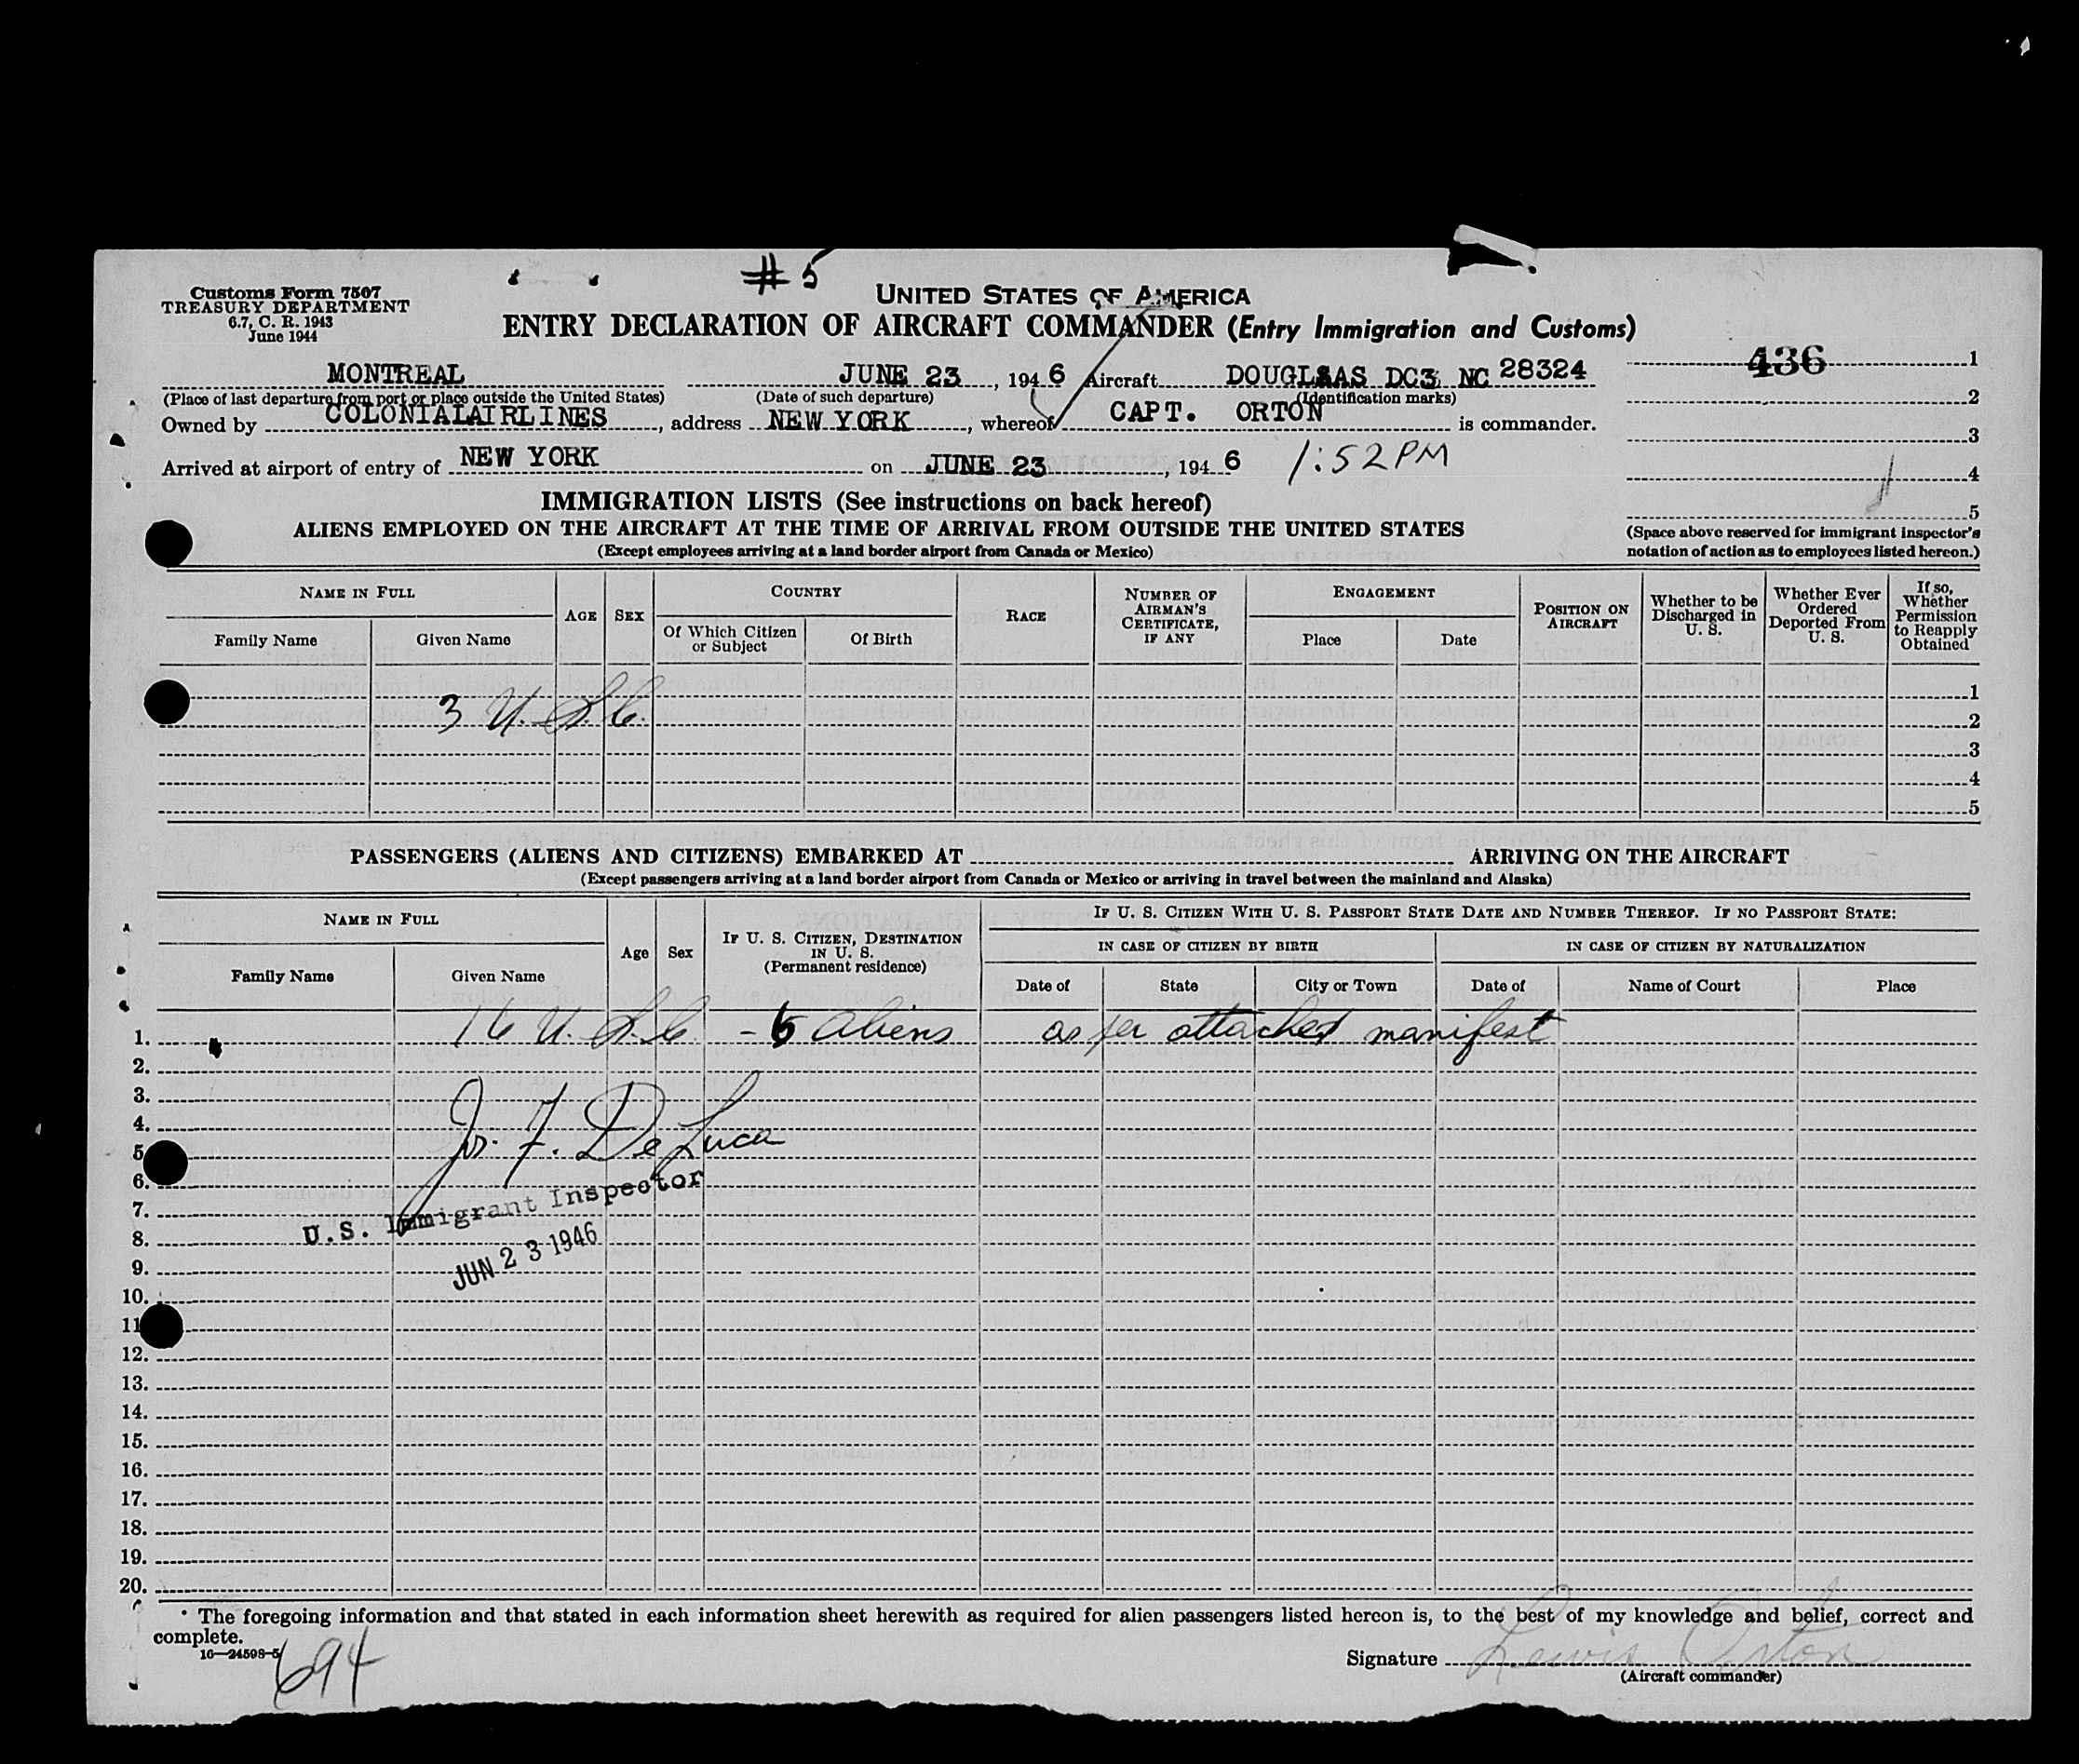 # 5
Customs Form 7507
TREASURY DEPARTMENT
6.7, C. R. 1943
June 1944
UNITED STATES OF AMERICA
ENTRY DECLARATION OF AIRCRAFT COMMANDER (Entry Immigration and Customs)
MONTREAL JUNE 23, 1946 Aircraft DOUGLAS DC3 NC 28324
(Place of last departure from port or place outside the United States) (Date of such departure) (Identification marks)
Owned by COLONIAL AIRLINES, address NEW YORK, whereof CAPT. ORTON is commander.
Arrived at airport of entry of NEW YORK on JUNE 23, 1946 1:52 PM
436 1
2
3
4
5
(Space above reserved for immigrant inspector's
notation of action as to employees listed hereon.)
IMMIGRATION LISTS (See instructions on back hereof)
ALIENS EMPLOYED ON THE AIRCRAFT AT THE TIME OF ARRIVAL FROM OUTSIDE THE UNITED STATES
(Except employees arriving at a land border airport from Canada or Mexico)
NAME IN FULL
Family Name Given Name
AGE SEX
COUNTRY
Of Which Citizen or Subject Of Birth
RACE
NUMBER OF AIRMAN'S CERTIFICATE, IF ANY
ENGAGEMENT
Place Date
POSITION ON AIRCRAFT
Whether to be Discharged in U. S.
Whether Ever Ordered Deported From U. S.
If so, Whether Permission to Reapply Obtained
1
3 U. S. C. 2
3
4
5
PASSENGERS (ALIENS AND CITIZENS) EMBARKED AT ARRIVING ON THE AIRCRAFT
(Except passengers arriving at a land border airport from Canada or Mexico or arriving in travel between the mainland and Alaska)
NAME IN FULL
Family Name Given Name
Age Sex
IF U. S. CITIZEN, DESTINATION IN U. S.
(Permanent residence)
IF U. S. CITIZEN WITH U. S. PASSPORT STATE DATE AND NUMBER THEREOF. IF NO PASSPORT STATE:
IN CASE OF CITIZEN BY BIRTH IN CASE OF CITIZEN BY NATURALIZATION
Date of State City or Town Date of Name of Court Place
1. 16 U. S. C. - 5 Aliens as per attached manifest
2.
3.
4. Jos. F. De Luca
5.
6.
7. U.S. Immigrant Inspector
8.
9. JUN 23 1946
10.
11
12.
13.
14.
15.
16.
17.
18.
19.
20.
The foregoing information and that stated in each information sheet herewith as required for alien passengers listed hereon is, to the best of my knowledge and belief, correct and
complete.
16—24598-5
694
Signature Lewis Orton
(Aircraft commander)